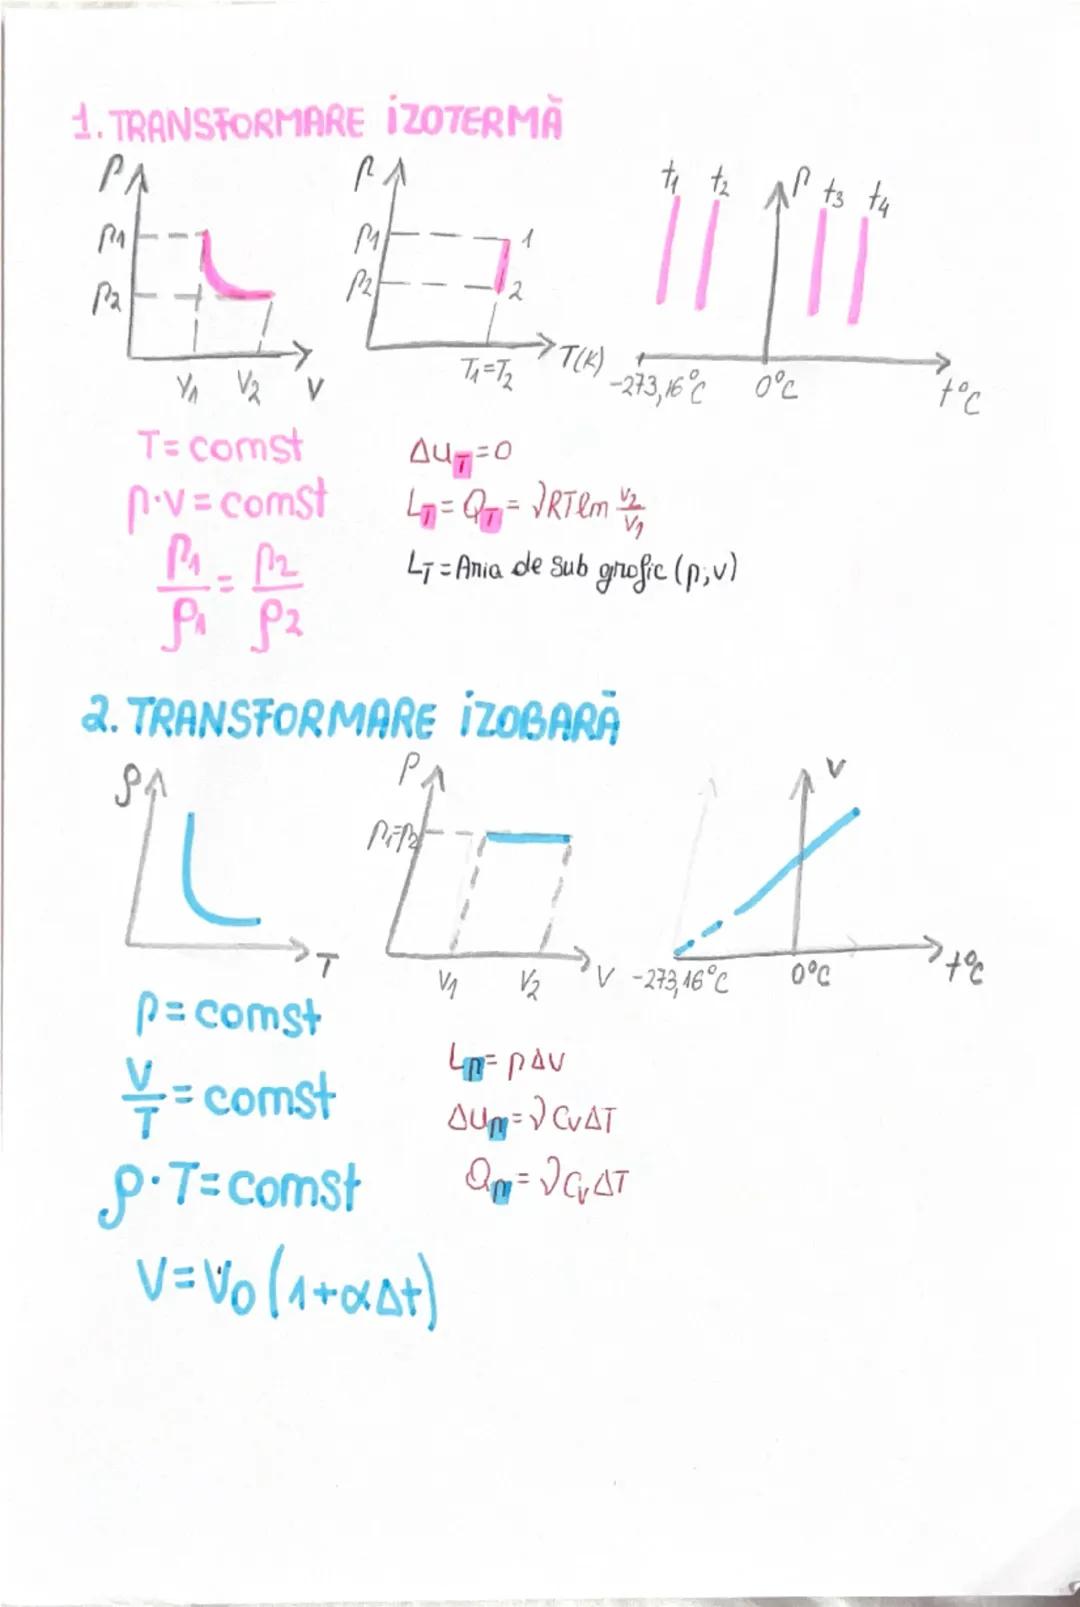 1. TRANSFORMARE IZOTERMĂ
p p p
t1 t2 t3 t4
p1 p1 1
p2 p2 2
V1 V2 V
T1=T2 T(K)
-273,16°C 0°C t°C
T=const
p·V=const
p1/ρ1 = p2/ρ2
ΔU_T=0
L_T=Q_T=νRTln V2/V1
L_T=Aria de sub grafic (p,v)
2. TRANSFORMARE IZOBARĂ
ρ p V
p1=p2
T
V1 V2 V
-273,16°C 0°C t°C
p=const
V/T=const
ρ·T=const
V=V0(1+αΔt)
L_p=pΔV
ΔU_p=νCvΔT
Q_p=νCpΔT